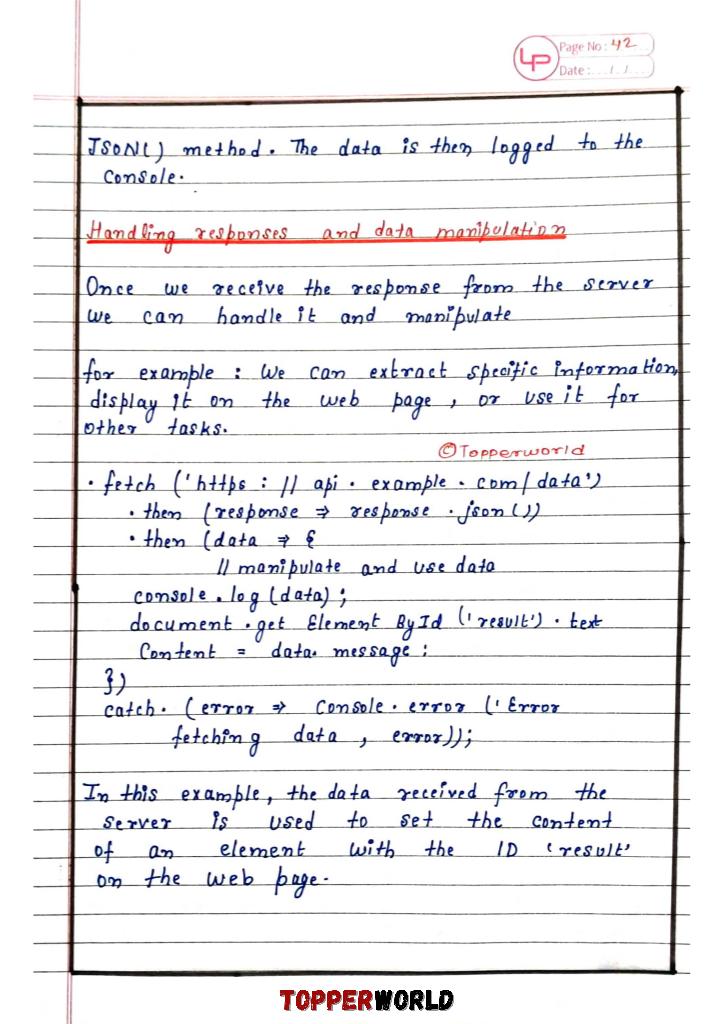 LP
Page No: 42
Date: ... / . / ...
JSON() method. The data is then logged to the
console.
Handling responses and data manipulation
Once we receive the response from the server
we can handle it and manipulate
for example : We can extract specific information,
display it on the web page , or use it for
other tasks.
©Topperworld
• fetch ('https : // api . example . com/ data')
• then (response ⇒ response .json ())
• then (data ⇒ {
// manipulate and use data
console . log (data) ;
document .get Element By Id ('result') . text
Content = data. message ;
})
catch. (error ⇒ Console . error ('Error
fetching data , error));
In this example, the data received from the
server is used to set the content
of an element with the ID 'result'
on the web page.
TOPPERWORLD